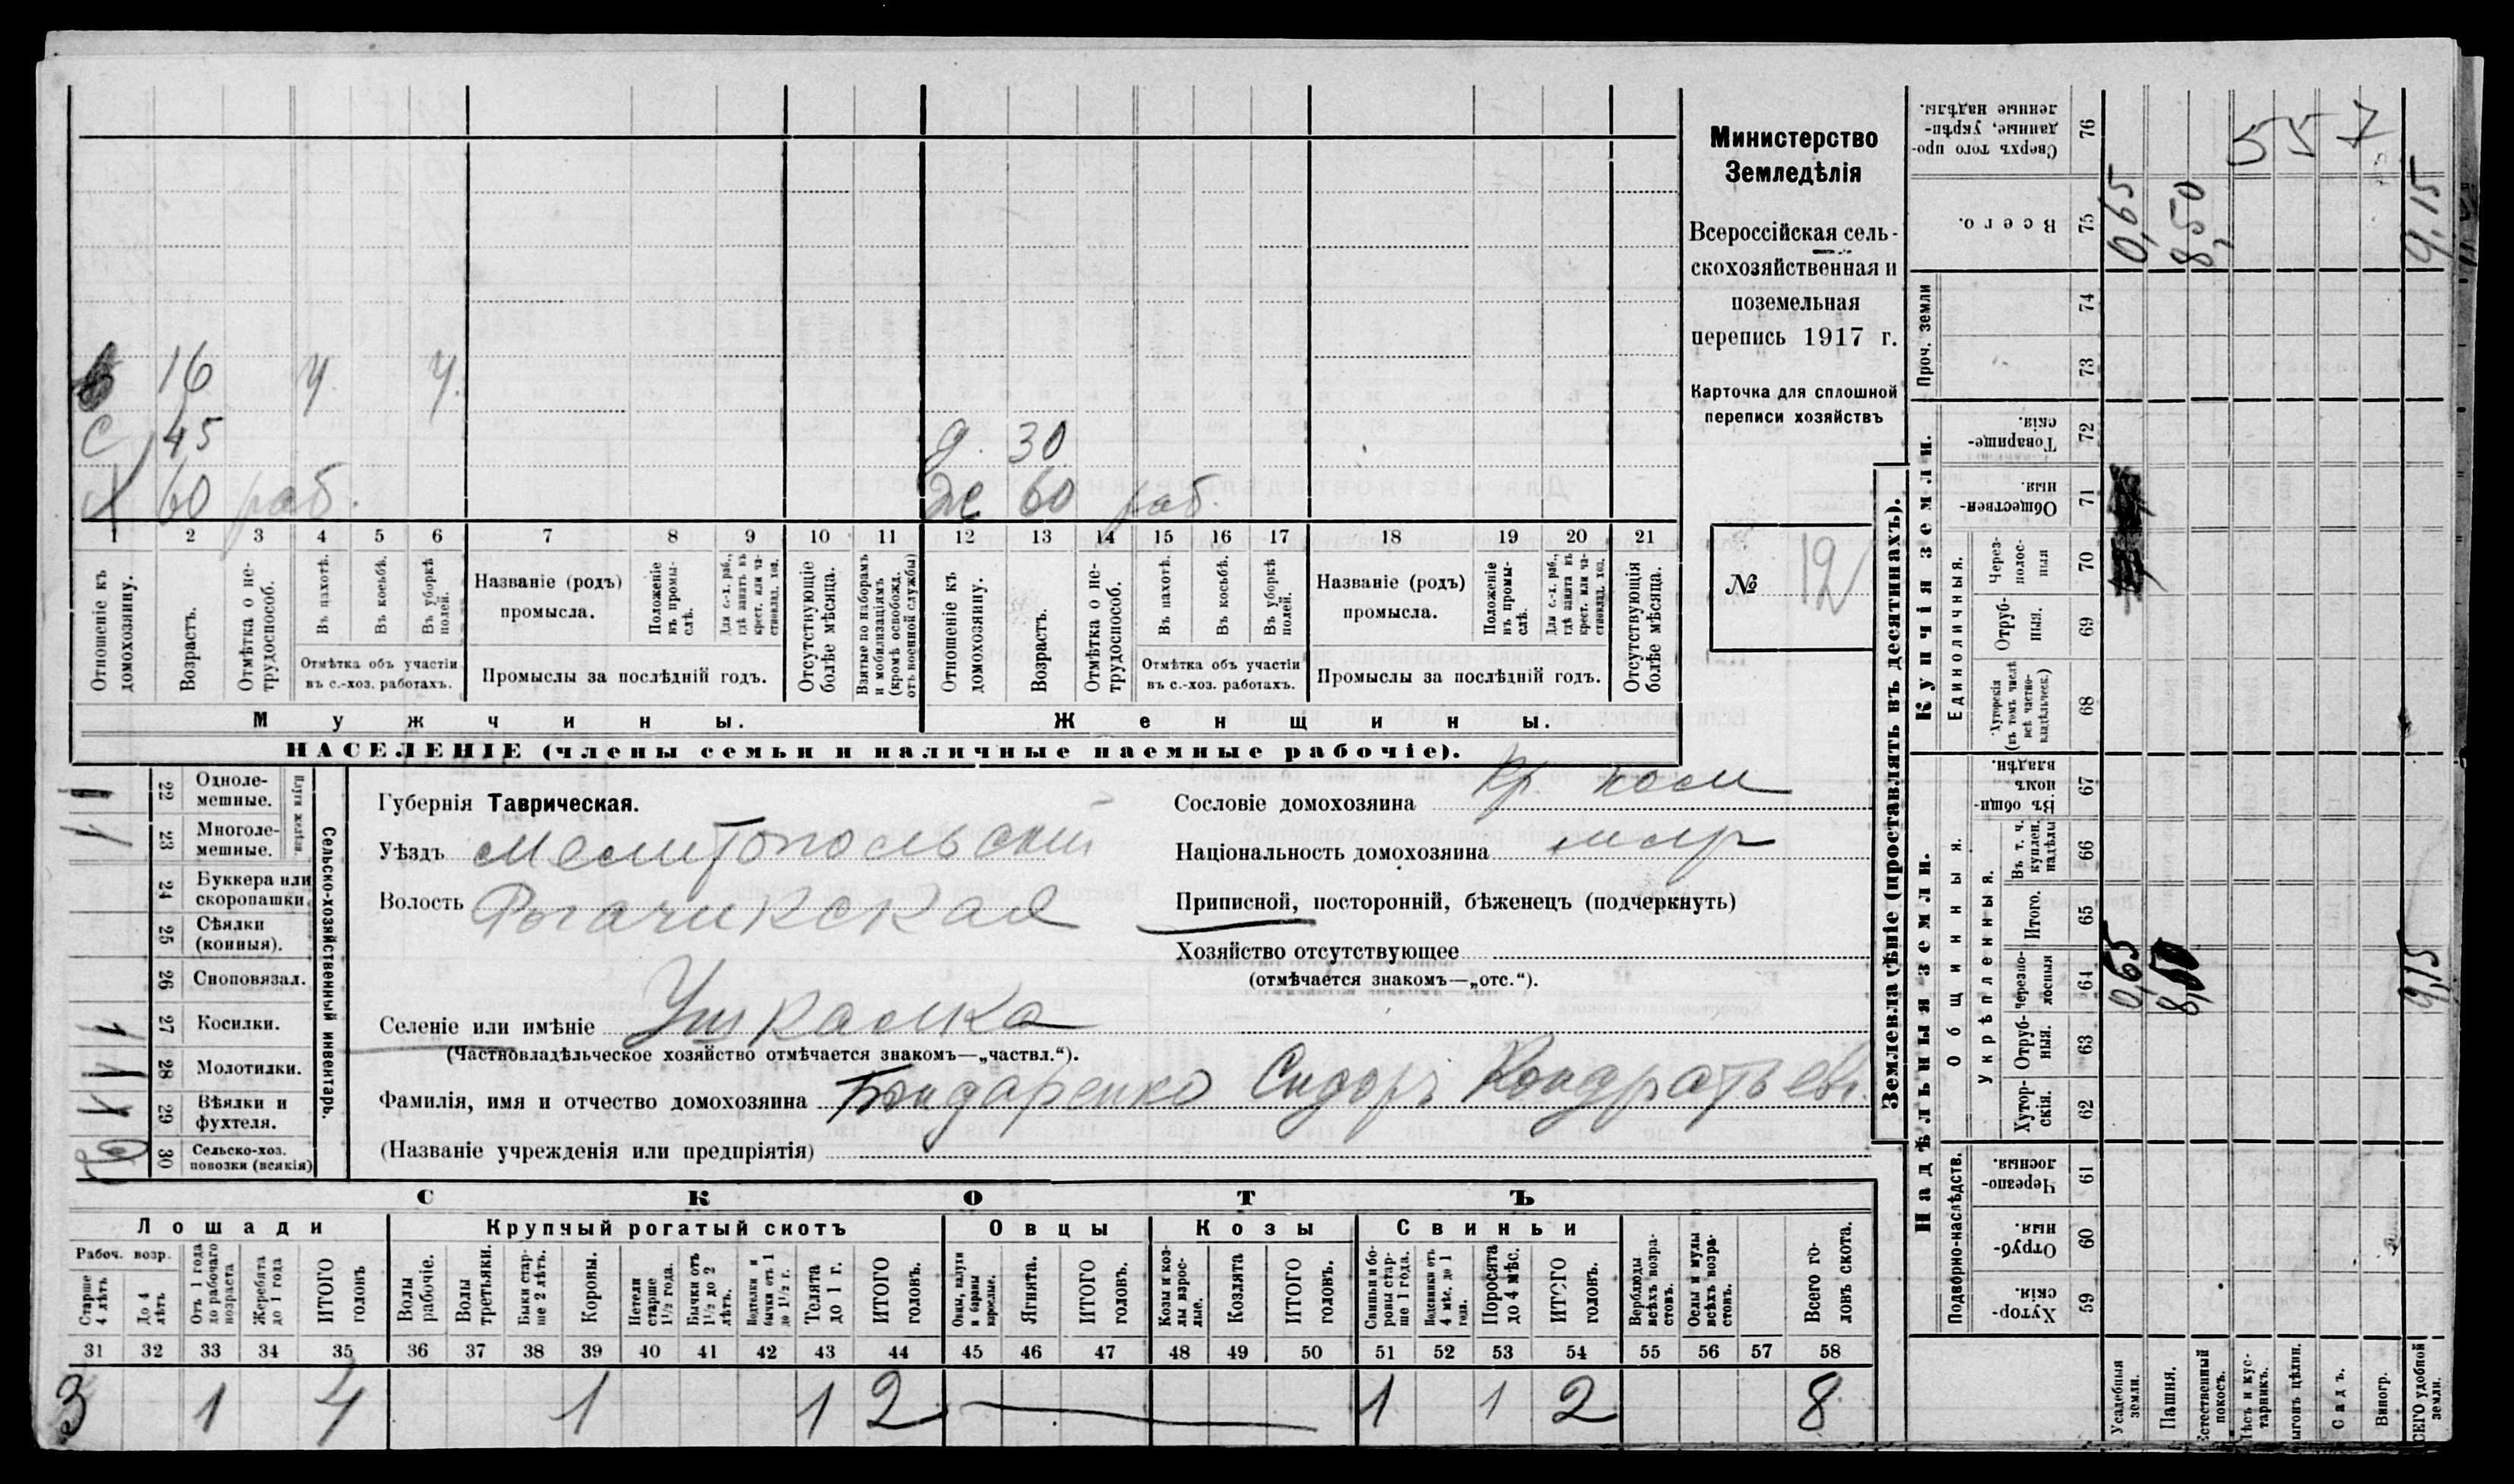 16 ч. ч.
с 45 д. 30
х 60 раб. Ж 60 раб.
1 2 3 4 5 6 7 8 9 10 11 12 13 14 15 16 17 18 19 20 21
Отношеніе къ домохозяину.
Возрастъ.
Отмѣтка о нетрудоспособ.
Въ пахотѣ.
Въ косьбѣ.
Въ уборкѣ полей.
Отмѣтка объ участіи
въ с.-хоз. работахъ.
Названіе (родъ)
промысла.
Положеніе въ промыслѣ.
Для с.-х. раб., гдѣ занятъ въ крест. или частновлад. хоз.
Промыслы за послѣдній годъ.
Отсутствующіе болѣе мѣсяца.
Взятые по наборамъ и мобилизаціямъ (кромѣ освобожд. отъ военной службы)
Отношеніе къ домохозяину.
Возрастъ.
Отмѣтка о нетрудоспособ.
Въ пахотѣ.
Въ косьбѣ.
Въ уборкѣ полей.
Отмѣтка объ участіи
въ с.-хоз. работахъ.
Названіе (родъ)
промысла.
Положеніе въ промыслѣ.
Для с.-х. раб., гдѣ занята въ крест. или частновлад. хоз.
Промыслы за послѣдній годъ.
Отсутствующія болѣе мѣсяца.
Мужчины.
Женщины.
НАСЕЛЕНІЕ (члены семьи и наличные наемные рабочіе).
Министерство
Земледѣлія
Всероссійская сель-
скохозяйственная и
поземельная
перепись 1917 г.
Карточка для сплошной
переписи хозяйствъ
№ 12
22 Одноле-
мешные.
23 Многоле-
мешные.
24 Буккера или
скоропашки.
25 Сѣялки
(конныя).
26 Сноповязал.
27 Косилки.
28 Молотилки.
29 Вѣялки и
фухтеля.
30 Сельско-хоз.
повозки (всякія)
Сельско-хозяйственный инвентарь.
Губернія Таврическая.
Уѣздъ Мелитопольскій
Волость Рогачикская
Селеніе или имѣніе Ушкалка
(Частновладѣльческое хозяйство отмѣчается знакомъ—„частвл.“).
Фамилія, имя и отчество домохозяина Бондаренко Сидоръ Кондратьев.
(Названіе учрежденія или предпріятія)
Сословіе домохозяина Кр. посел
Національность домохозяина млр
Приписной, посторонній, бѣженецъ (подчеркнуть)
Хозяйство отсутствующее
(отмѣчается знакомъ—„отс.“).
СКОТЪ
Лошади Крупный рогатый скотъ Овцы Козы Свиньи
Рабоч. возр.
Старше 4 лѣтъ
До 4 лѣтъ
Отъ 1 года до рабочаго возраста
Жеребята до 1 года
ИТОГО головъ
Волы рабочіе.
Волы третьяки.
Быки старше 2 лѣтъ.
Коровы.
Нетели старше 1½ года.
Бычки отъ 1½ до 2 лѣтъ.
Подтелки и бычки отъ 1 до 1½ г.
Телята до 1 г.
ИТОГО головъ.
Овцы, валухи и бараны взрослые.
Ягнята.
ИТОГО головъ.
Козы и козлы взрослые.
Козлята
ИТОГО головъ.
Свиньи и боровы старше 1 года.
Подсвинки отъ 4 мѣс. до 1 года.
Поросята до 4 мѣс.
ИТОГО головъ.
Верблюды всѣхъ возрастовъ.
Ослы и мулы всѣхъ возрастовъ.
Всего головъ скота.
31 32 33 34 35 36 37 38 39 40 41 42 43 44 45 46 47 48 49 50 51 52 53 54 55 56 57 58
3 1 4 1 1 2 1 1 2 8
Землевладѣніе (проставлять въ десятинахъ).
Надѣльныя земли.
Купчія земли.
Проч. земли
Общинныя.
Укрѣпленныя.
Подворно-наслѣдств.
Единоличныя.
76 Сверхъ того проданные, укрѣпленные надѣлы.
75 Всего. 0,65 8,50 9,15
74
73
72 Товарищескія.
71 Общественныя.
70 Черезполосныя
69 Отрубныя.
68 Хуторскія (въ томъ числѣ всѣ частновладѣльческ.)
67 Въ общинномъ владѣн.
66 Въ т. ч. куплен. надѣлы
65 Итого.
64 Черезполосныя 0,65 8,50 9,15
63 Отрубныя.
62 Хуторскія.
61 Черезполосныя.
60 Отрубныя.
59 Хуторскія.
557
Усадебныя земли.
Пашня.
Естественный покосъ.
Лѣсъ и кустарникъ.
Выгонъ цѣлин.
Садъ.
Виногр.
ВСЕГО удобной земли.